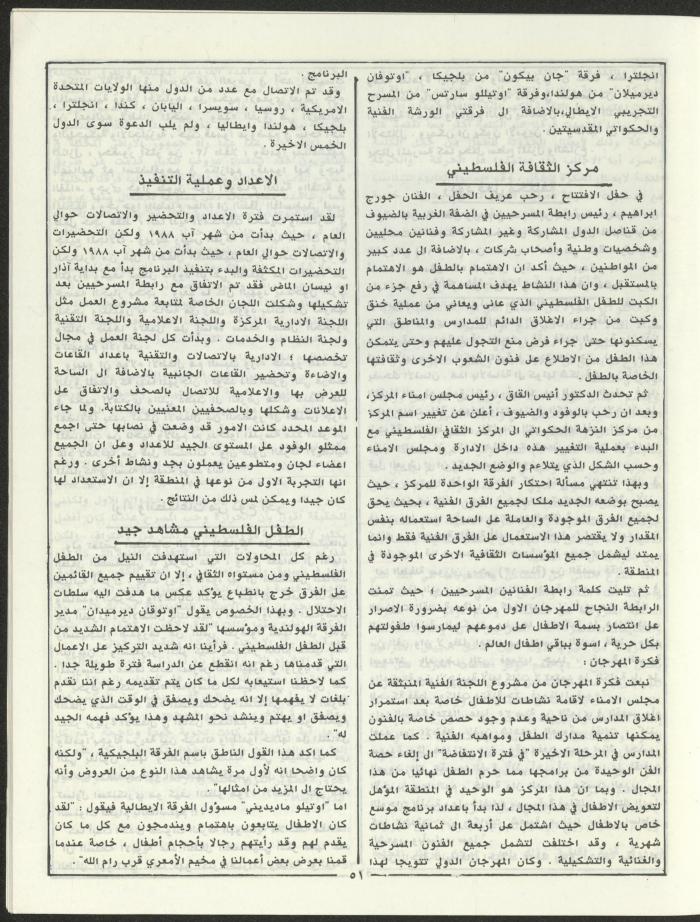 انجلترا ، فرقة "جان بيكون" من بلجيكا ، "اوتوفان
ديرميلان" من هولندا،وفرقة "اوتيللو سارتس" من المسرح
التجريبي الايطالي،بالاضافة الى فرقتي الورشة الفنية
والحكواتي المقدسيتين .
مركز الثقافة الفلسطيني
في حفل الافتتاح ، رحب عريف الحفل ، الفنان جورج
ابراهيم ، رئيس رابطة المسرحيين في الضفة الغربية بالضيوف
من قناصل الدول المشاركة وغير المشاركة وفنانين محليين
وشخصيات وطنية وأصحاب شركات ، بالاضافة الى عدد كبير
من المواطنين ، حيث أكد ان الاهتمام بالطفل هو الاهتمام
بالمستقبل ، وان هذا النشاط يهدف المساهمة في رفع جزء من
الكبت للطفل الفلسطيني الذي عانى ويعاني من عملية خنق
وكبت من جراء الاغلاق الدائم للمدارس والمناطق التي
يسكنونها حتى جراء فرض منع التجول عليهم وحتى يتمكن
هذا الطفل من الاطلاع على فنون الشعوب الاخرى وثقافتها
الخاصة بالطفل .
ثم تحدث الدكتور أنيس القاق ، رئيس مجلس امناء المركز،
وبعد ان رحب بالوفود والضيوف ، أعلن عن تغيير اسم المركز
من مركز النزهة الحكواتي الى المركز الثقافي الفلسطيني مع
البدء بعملية التغيير هذه داخل الادارة ومجلس الامناء
وحسب الشكل الذي يتلاءم والوضع الجديد .
وبهذا تنتهي مسألة احتكار الفرقة الواحدة للمركز ، حيث
يصبح بوضعه الجديد ملكا لجميع الفرق الفنية ، بحيث يحق
لجميع الفرق الموجودة والعاملة على الساحة استعماله بنفس
المقدار ولا يقتصر هذا الاستعمال على الفرق الفنية فقط وانما
يمتد ليشمل جميع المؤسسات الثقافية الاخرى الموجودة في
المنطقة .
ثم تليت كلمة رابطة الفنانين المسرحيين ؛ حيث تمنت
الرابطة النجاح للمهرجان الاول من نوعه بضرورة الاصرار
على انتصار بسمة الاطفال على دموعهم ليمارسوا طفولتهم
بكل حرية ، اسوة بباقي اطفال العالم .
فكرة المهرجان :
نبعت فكرة المهرجان من مشروع اللجنة الفنية المنبثقة عن
مجلس الامناء لاقامة نشاطات للاطفال خاصة بعد استمرار
اغلاق المدارس من ناحية وعدم وجود حصص خاصة بالفنون
يمكنها تنمية مدارك الطفل ومواهبه الفنية . كما عملت
المدارس في المرحلة الاخيرة "في فترة الانتفاضة" الى إلغاء حصة
الفن الوحيدة من برامجها مما حرم الطفل نهائيا من هذا
المجال . وبما ان هذا المركز هو الوحيد في المنطقة المؤهل
لتعويض الاطفال في هذا المجال ، لذا بدأ باعداد برنامج موسع
خاص بالاطفال حيث اشتمل على أربعة الى ثمانية نشاطات
شهرية ، وقد اختلفت لتشمل جميع الفنون المسرحية
والغنائية والتشكيلية . وكان المهرجان الدولي تتويجا لهذا
البرنامج .
وقد تم الاتصال مع عدد من الدول منها الولايات المتحدة
الامريكية ، روسيا ، سويسرا ، اليابان ، كندا ، انجلترا ،
بلجيكا ، هولندا وايطاليا ، ولم يلب الدعوة سوى الدول
الخمس الاخيرة .
الاعداد وعملية التنفيذ
لقد استمرت فترة الاعداد والتحضير والاتصالات حوالي
العام ، حيث بدأت من شهر آب ١٩٨٨ ولكن التحضيرات
والاتصالات حوالي العام ، حيث بدأت من شهر آب ١٩٨٨ ولكن
التحضيرات المكثفة والبدء بتنفيذ البرنامج بدأ مع بداية آذار
او نيسان الماضي فقد تم الاتفاق مع رابطة المسرحيين بعد
تشكيلها وشكلت اللجان الخاصة لمتابعة مشروع العمل مثل
اللجنة الادارية المركزة واللجنة الاعلامية واللجنة التقنية
ولجنة النظام والخدمات . وبدأت كل لجنة العمل في مجال
تخصصها ؛ الادارية بالاتصالات والتقنية باعداد القاعات
والاضاءة وتحضير القاعات الجانبية بالاضافة الى الساحة
للعرض بها والاعلامية للاتصال بالصحف والاتفاق على
الاعلانات وشكلها وبالصحفيين المعنيين بالكتابة. ولما جاء
الموعد المحدد كانت الامور قد وضعت في نصابها حتى اجمع
ممثلو الوفود على المستوى الجيد للاعداد وعل ان الجميع
اعضاء لجان ومتطوعين يعملون بجد ونشاط أخرى . ورغم
انها التجربة الاولى من نوعها في المنطقة إلا ان الاستعداد لها
كان جيدا ويمكن لمس ذلك من النتائج .
الطفل الفلسطيني مشاهد جيد
رغم كل المحاولات التي استهدفت النيل من الطفل
الفلسطيني ومن مستواه الثقافي ، إلا ان تقييم جميع القائمين
على الفرق خرج بانطباع يؤكد عكس ما هدفت اليه سلطات
الاحتلال . وبهذا الخصوص يقول "اوتوفان ديرميدان" مدير
الفرقة الهولندية ومؤسسها "لقد لاحظت الاهتمام الشديد من
قبل الطفل الفلسطيني . فرأينا انه شديد التركيز على الاعمال
التي قدمناها رغم انه انقطع عن الدراسة فترة طويلة جدا .
كما لاحظنا استيعابه لكل ما كان يتم تقديمه رغم اننا نقدم
بلغات لا يفهمها إلا انه يضحك ويصفق في الوقت الذي يضحك
ويصفق او يهتم وينشد نحو المشهد وهذا يؤكد فهمه الجيد
له" .
كما اكد هذا القول الناطق باسم الفرقة البلجيكية ، "ولكنه
كان واضحا انه لأول مرة يشاهد هذا النوع من العروض وأنه
يحتاج الى المزيد من امثالها" .
اما "اوتيلو ماديديني" مسؤول الفرقة الايطالية فيقول : "لقد
كان الاطفال يتابعون باهتمام ويندمجون مع كل ما كان
يقدم لهم وقد رأيتهم رجالا بأحجام أطفال ، خاصة عندما
قمنا بعرض بعض أعمالنا في مخيم الأمعري قرب رام الله" .
٥١